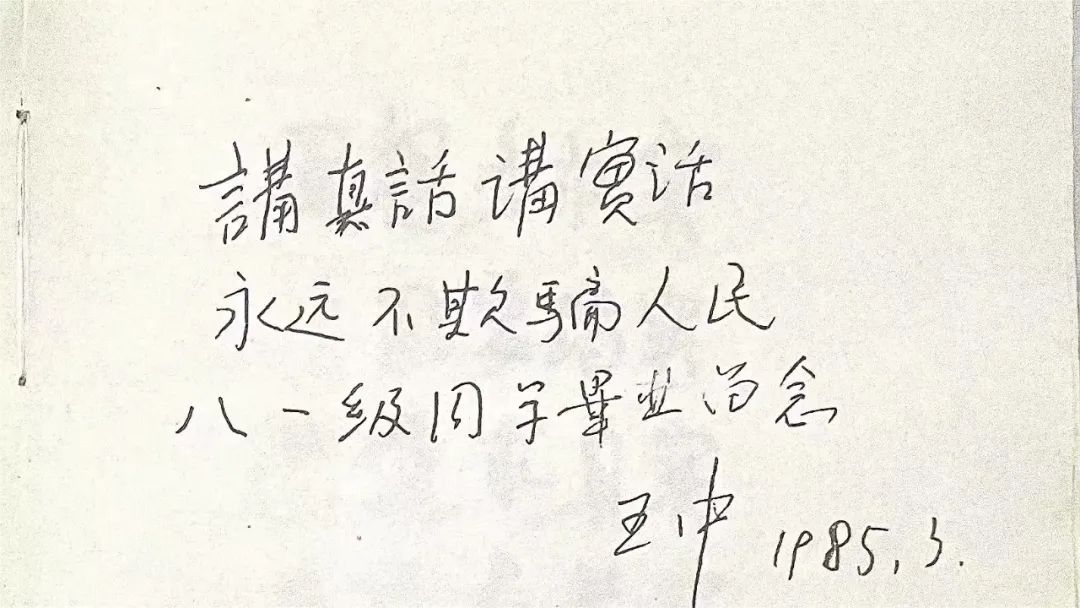 講真話講實话
永远不欺騙人民
八一级同学畢业留念
王中 1985.3.